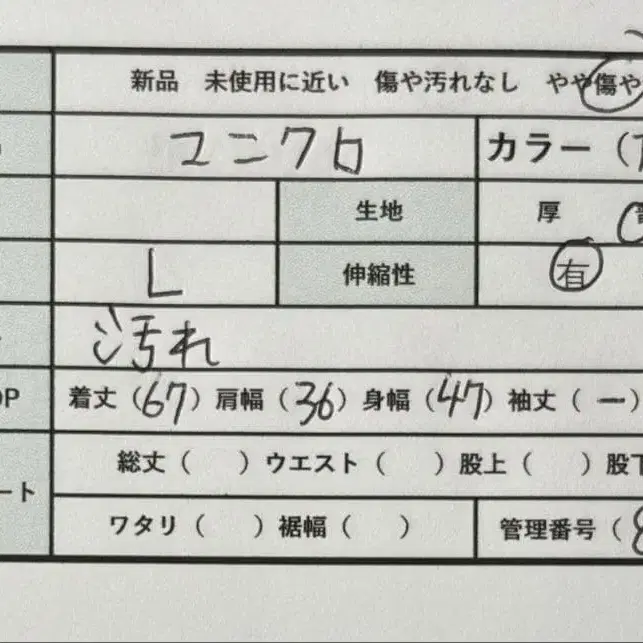 新品 未使用に近い 傷や汚れなし やや傷や
ユニクロ カラー（
生地 厚
L 伸縮性 有
汚れ
OP 着丈（67）肩幅（36）身幅（47）袖丈（ー）
総丈（ ）ウエスト（ ）股上（ ）股下
ート
ワタリ（ ）裾幅（ ） 管理番号（8